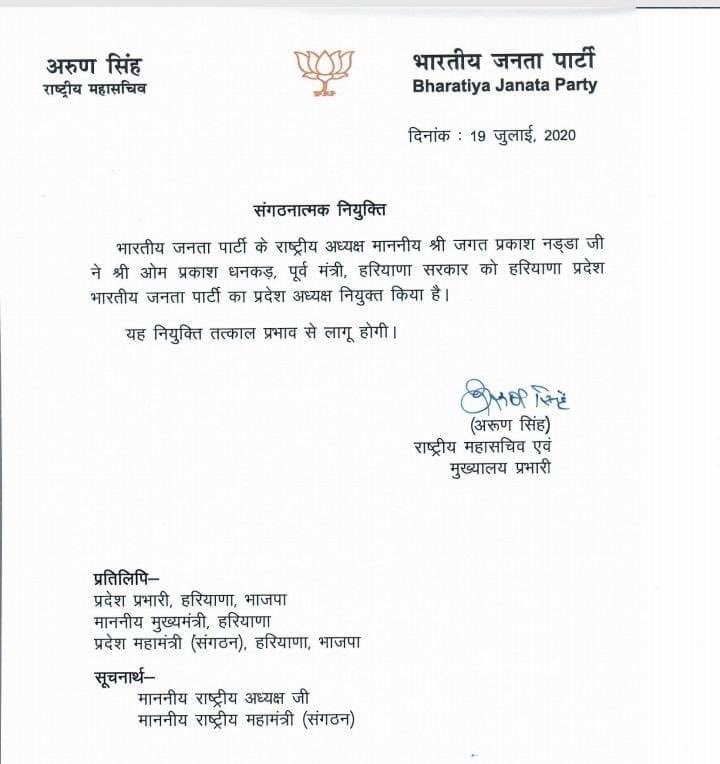 अरुण सिंह
राष्ट्रीय महासचिव
भारतीय जनता पार्टी
Bharatiya Janata Party
दिनांक : 19 जुलाई, 2020
संगठनात्मक नियुक्ति
भारतीय जनता पार्टी के राष्ट्रीय अध्यक्ष माननीय श्री जगत प्रकाश नड्डा जी
ने श्री ओम प्रकाश धनकड़, पूर्व मंत्री, हरियाणा सरकार को हरियाणा प्रदेश
भारतीय जनता पार्टी का प्रदेश अध्यक्ष नियुक्त किया है।
यह नियुक्ति तत्काल प्रभाव से लागू होगी।
अरुण सिंह
(अरूण सिंह)
राष्ट्रीय महासचिव एवं
मुख्यालय प्रभारी
प्रतिलिपि–
प्रदेश प्रभारी, हरियाणा, भाजपा
माननीय मुख्यमंत्री, हरियाणा
प्रदेश महामंत्री (संगठन), हरियाणा, भाजपा
सूचनार्थ–
माननीय राष्ट्रीय अध्यक्ष जी
माननीय राष्ट्रीय महामंत्री (संगठन)